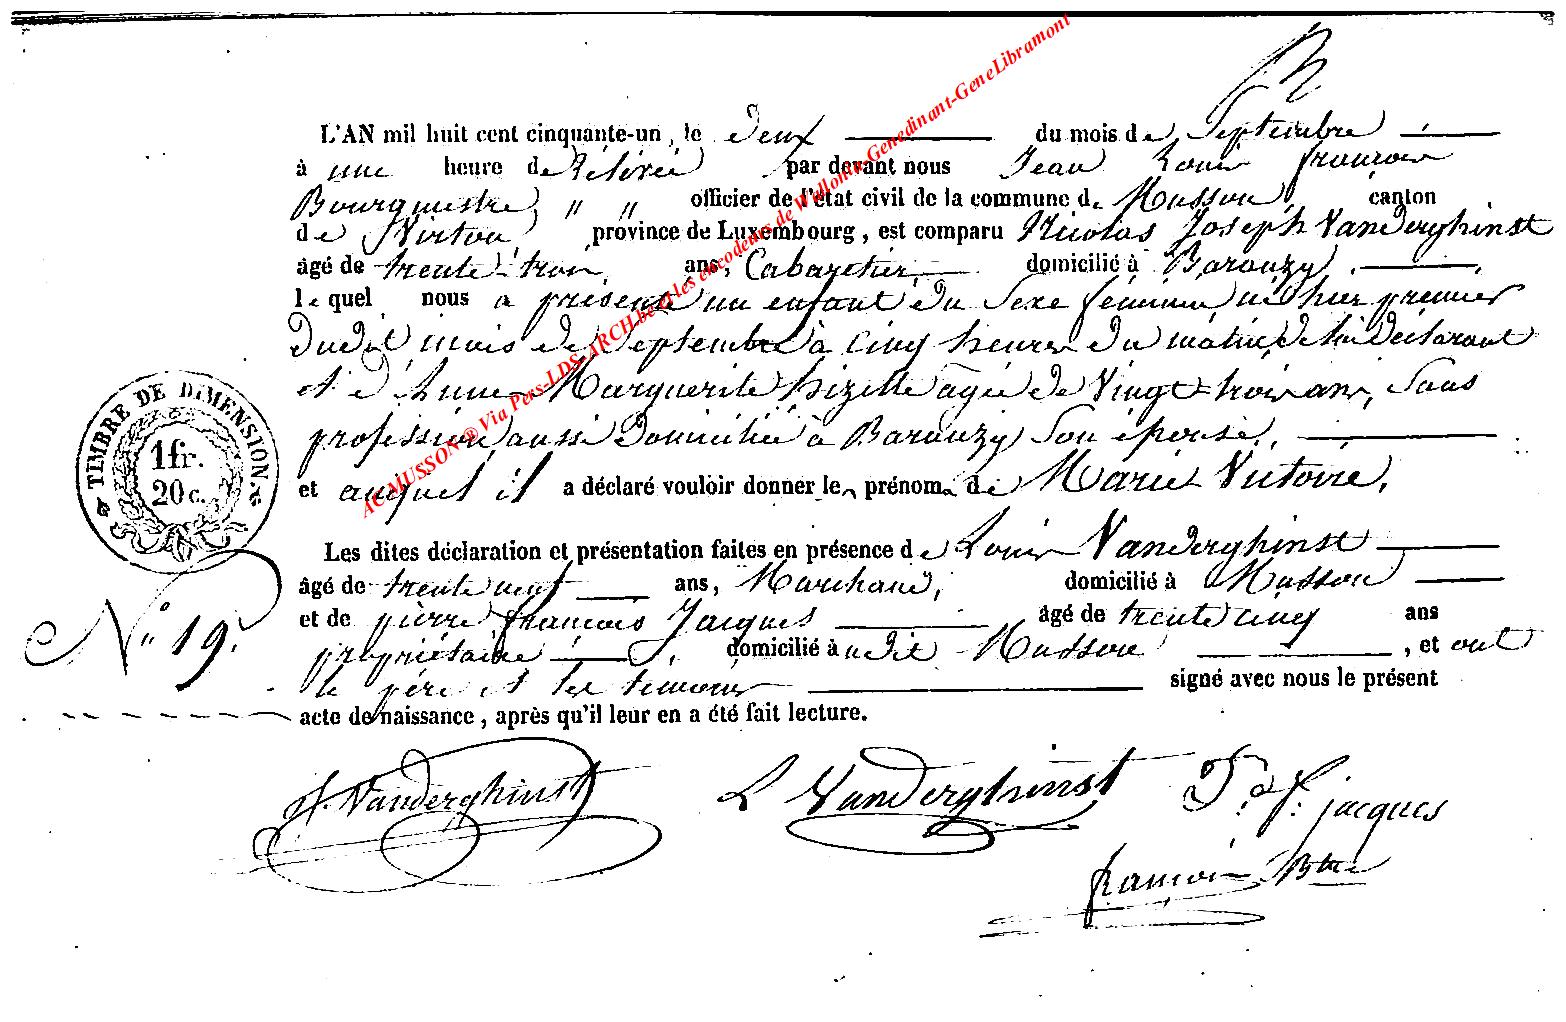 L'AN mil huit cent cinquante-un, le deux du mois de Septembre
à une heure de Rélévée par devant nous Jean Louis françois
Bourgmestre, " " officier de l'état civil de la commune de Musson, canton
de Virton, province de Luxembourg, est comparu Nicolas Joseph Vanderghinst
âgé de trente-trois ans, Cabaretier, domicilié à Baranzy,
le quel nous a présenté un enfant du Sexe féminin, né hier premier
dudit mois de Septembre à cinq heures du matin, de lui déclarant
et d'Anne Marguerite hizette agée de Vingt-trois ans, Sans
profession, aussi domiciliée à Baranzy, Son épouse,
et auquel il a déclaré vouloir donner les prénoms de Marie Victoire,
Les dites déclaration et présentation faites en présence de Louis Vanderghinst
âgé de trente neuf ans, Marchand, domicilié à Musson
et de pierre françois Jacques âgé de trente cinq ans
propriétaire, domicilié àudit Musson, et ont
le père et les temoins signé avec nous le présent
acte de naissance, après qu'il leur en a été fait lecture.
TIMBRE DE DIMENSION
1 fr.
20 c.
N° 19.
Vanderghinst
L Vanderghinst
P. f. jacques
françois Btre
ACMUSSON ® Via Pers-LDS-ARCH.be et les encodeurs de Wallonia-Genedinant-GeneLibramont